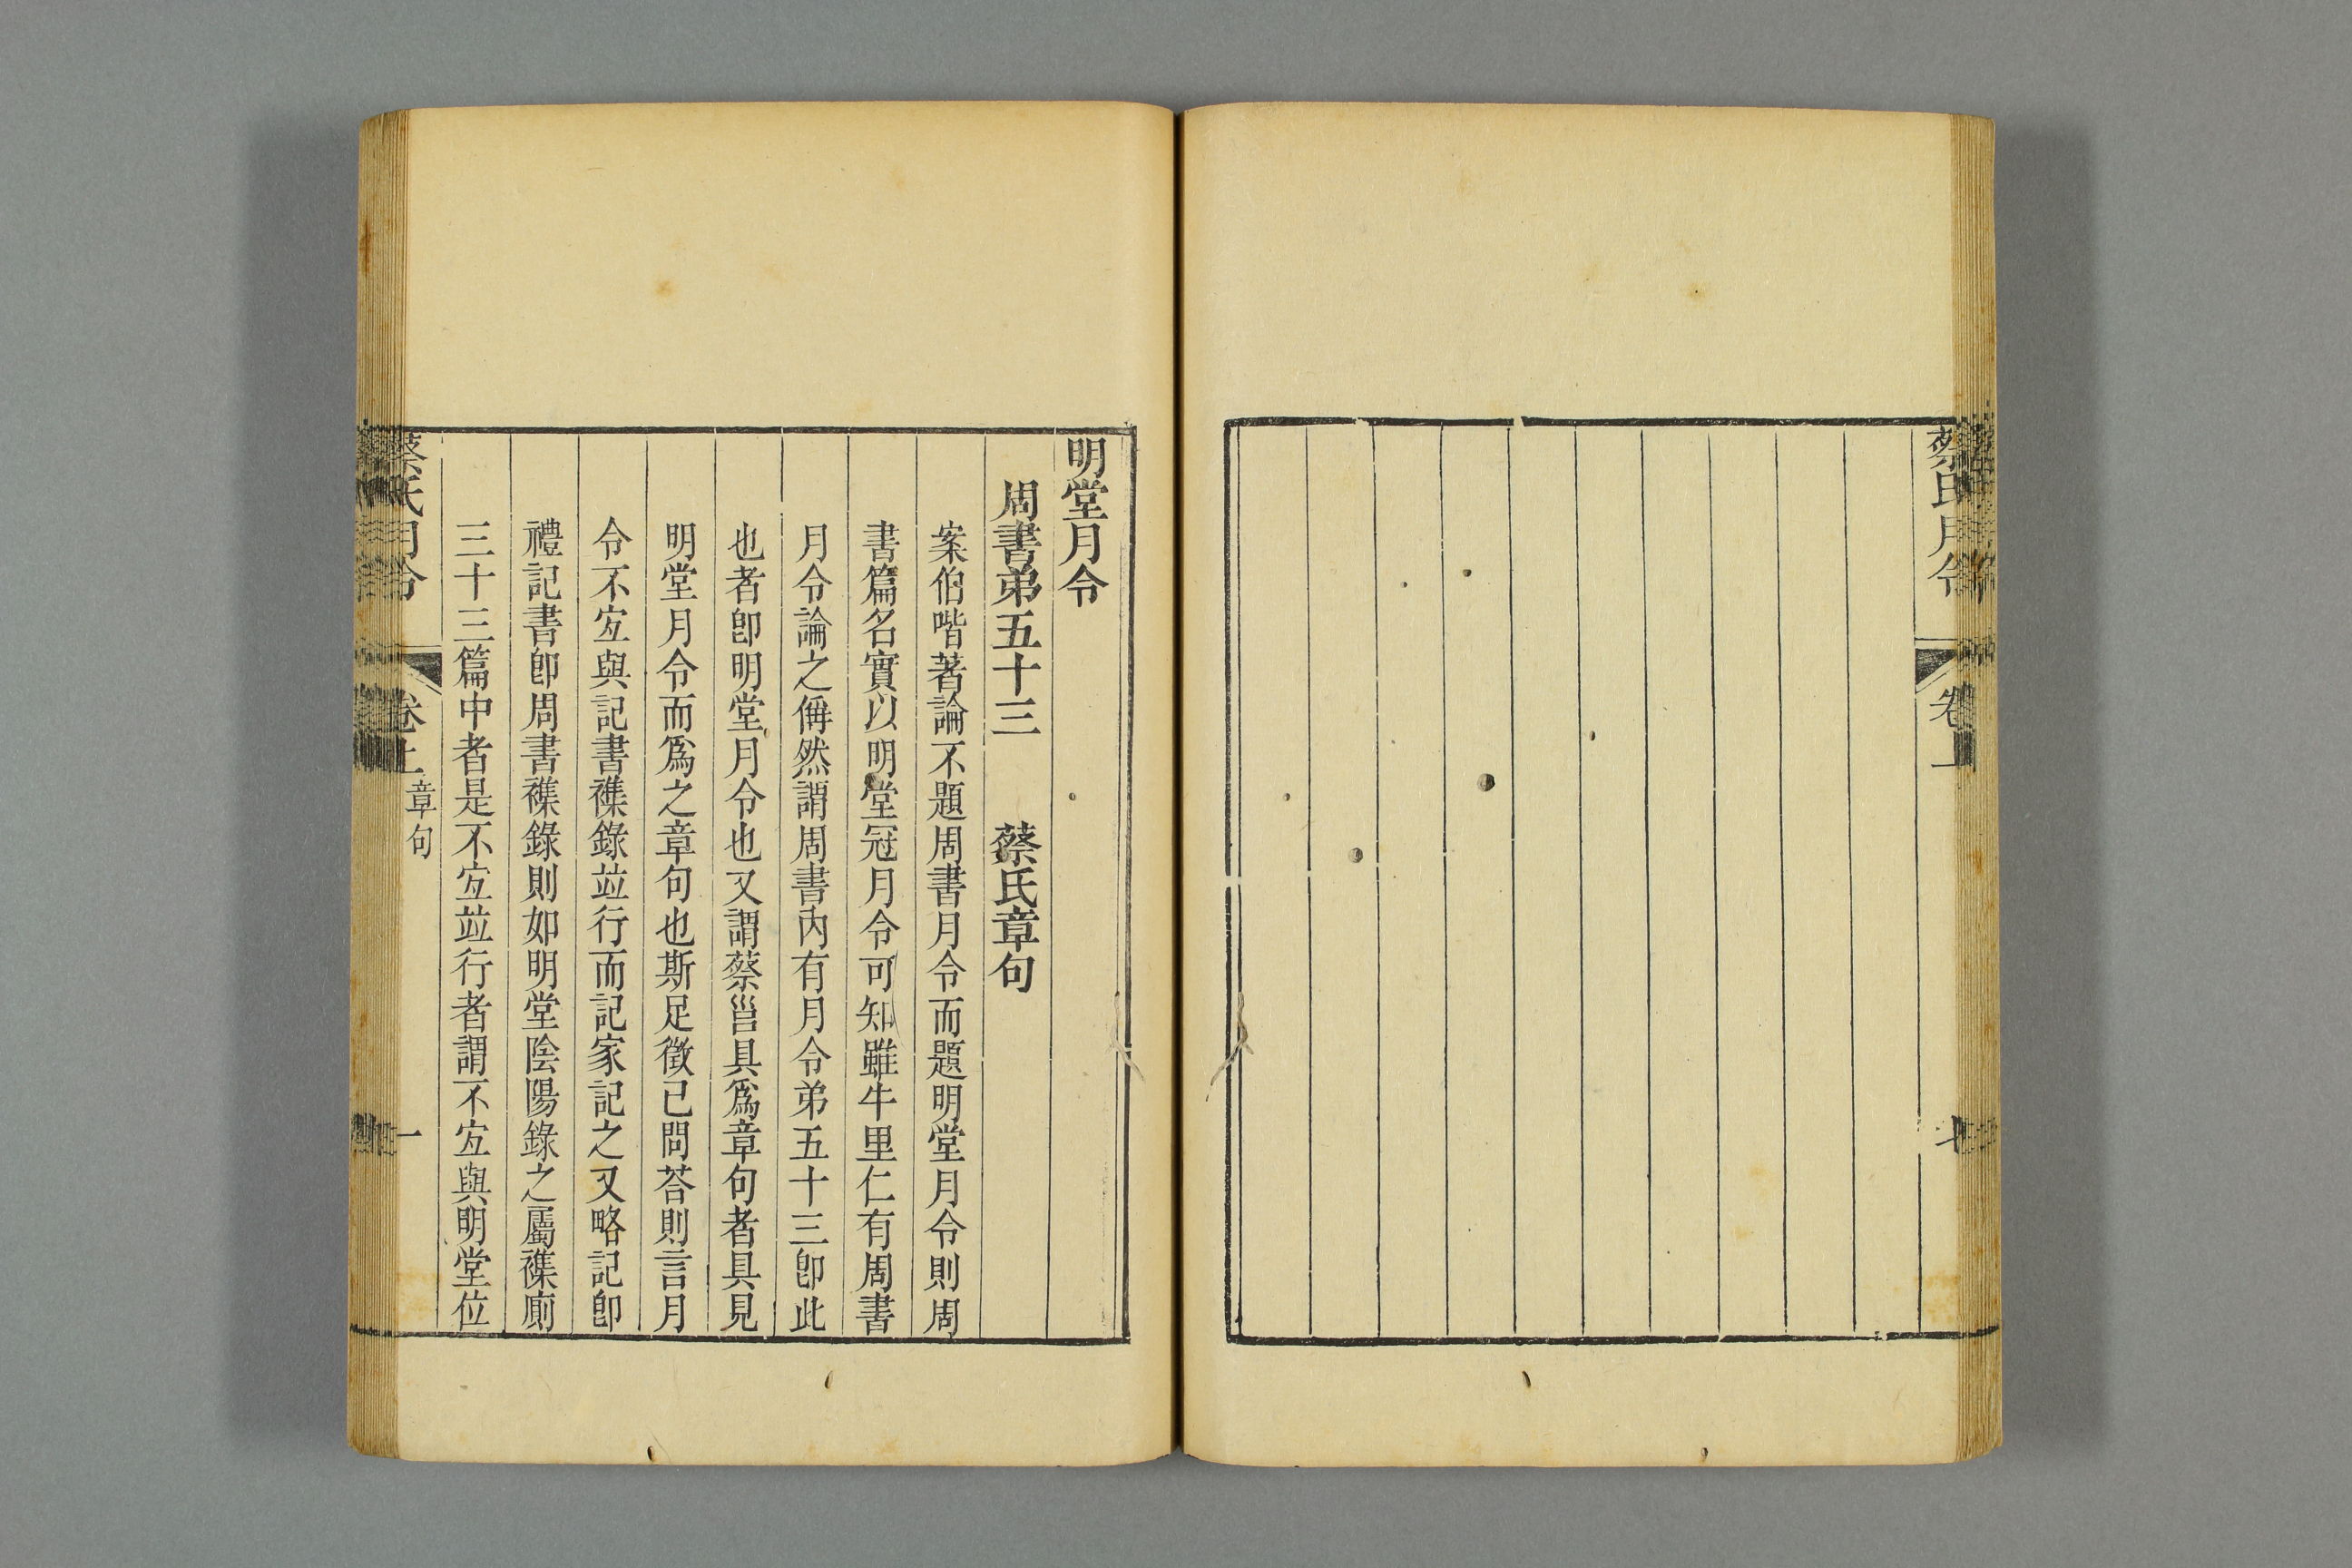 蔡氏月令
卷上
七
明堂月令
周書弟五十三　蔡氏章句
案伯喈著論不題周書月令而題明堂月令則周
書篇名實以明堂冠月令可知雖牛里仁有周書
月令論之偁然謂周書內有月令弟五十三卽此
也者卽明堂月令也又謂蔡邕具爲章句者具見
明堂月令而爲之章句也斯足徵已問荅則言月
令不宐與記書襍錄竝行而記家記之又略記卽
禮記書卽周書襍錄則如明堂陰陽錄之屬襍廁
三十三篇中者是不宐竝行者謂不宐與明堂位
蔡氏月令
卷上
章句
一